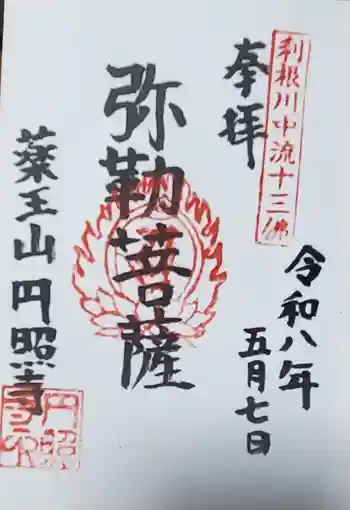 利根川中流十三佛
奉拝
令和八年
五月七日
弥勒菩薩
薬王山円照寺